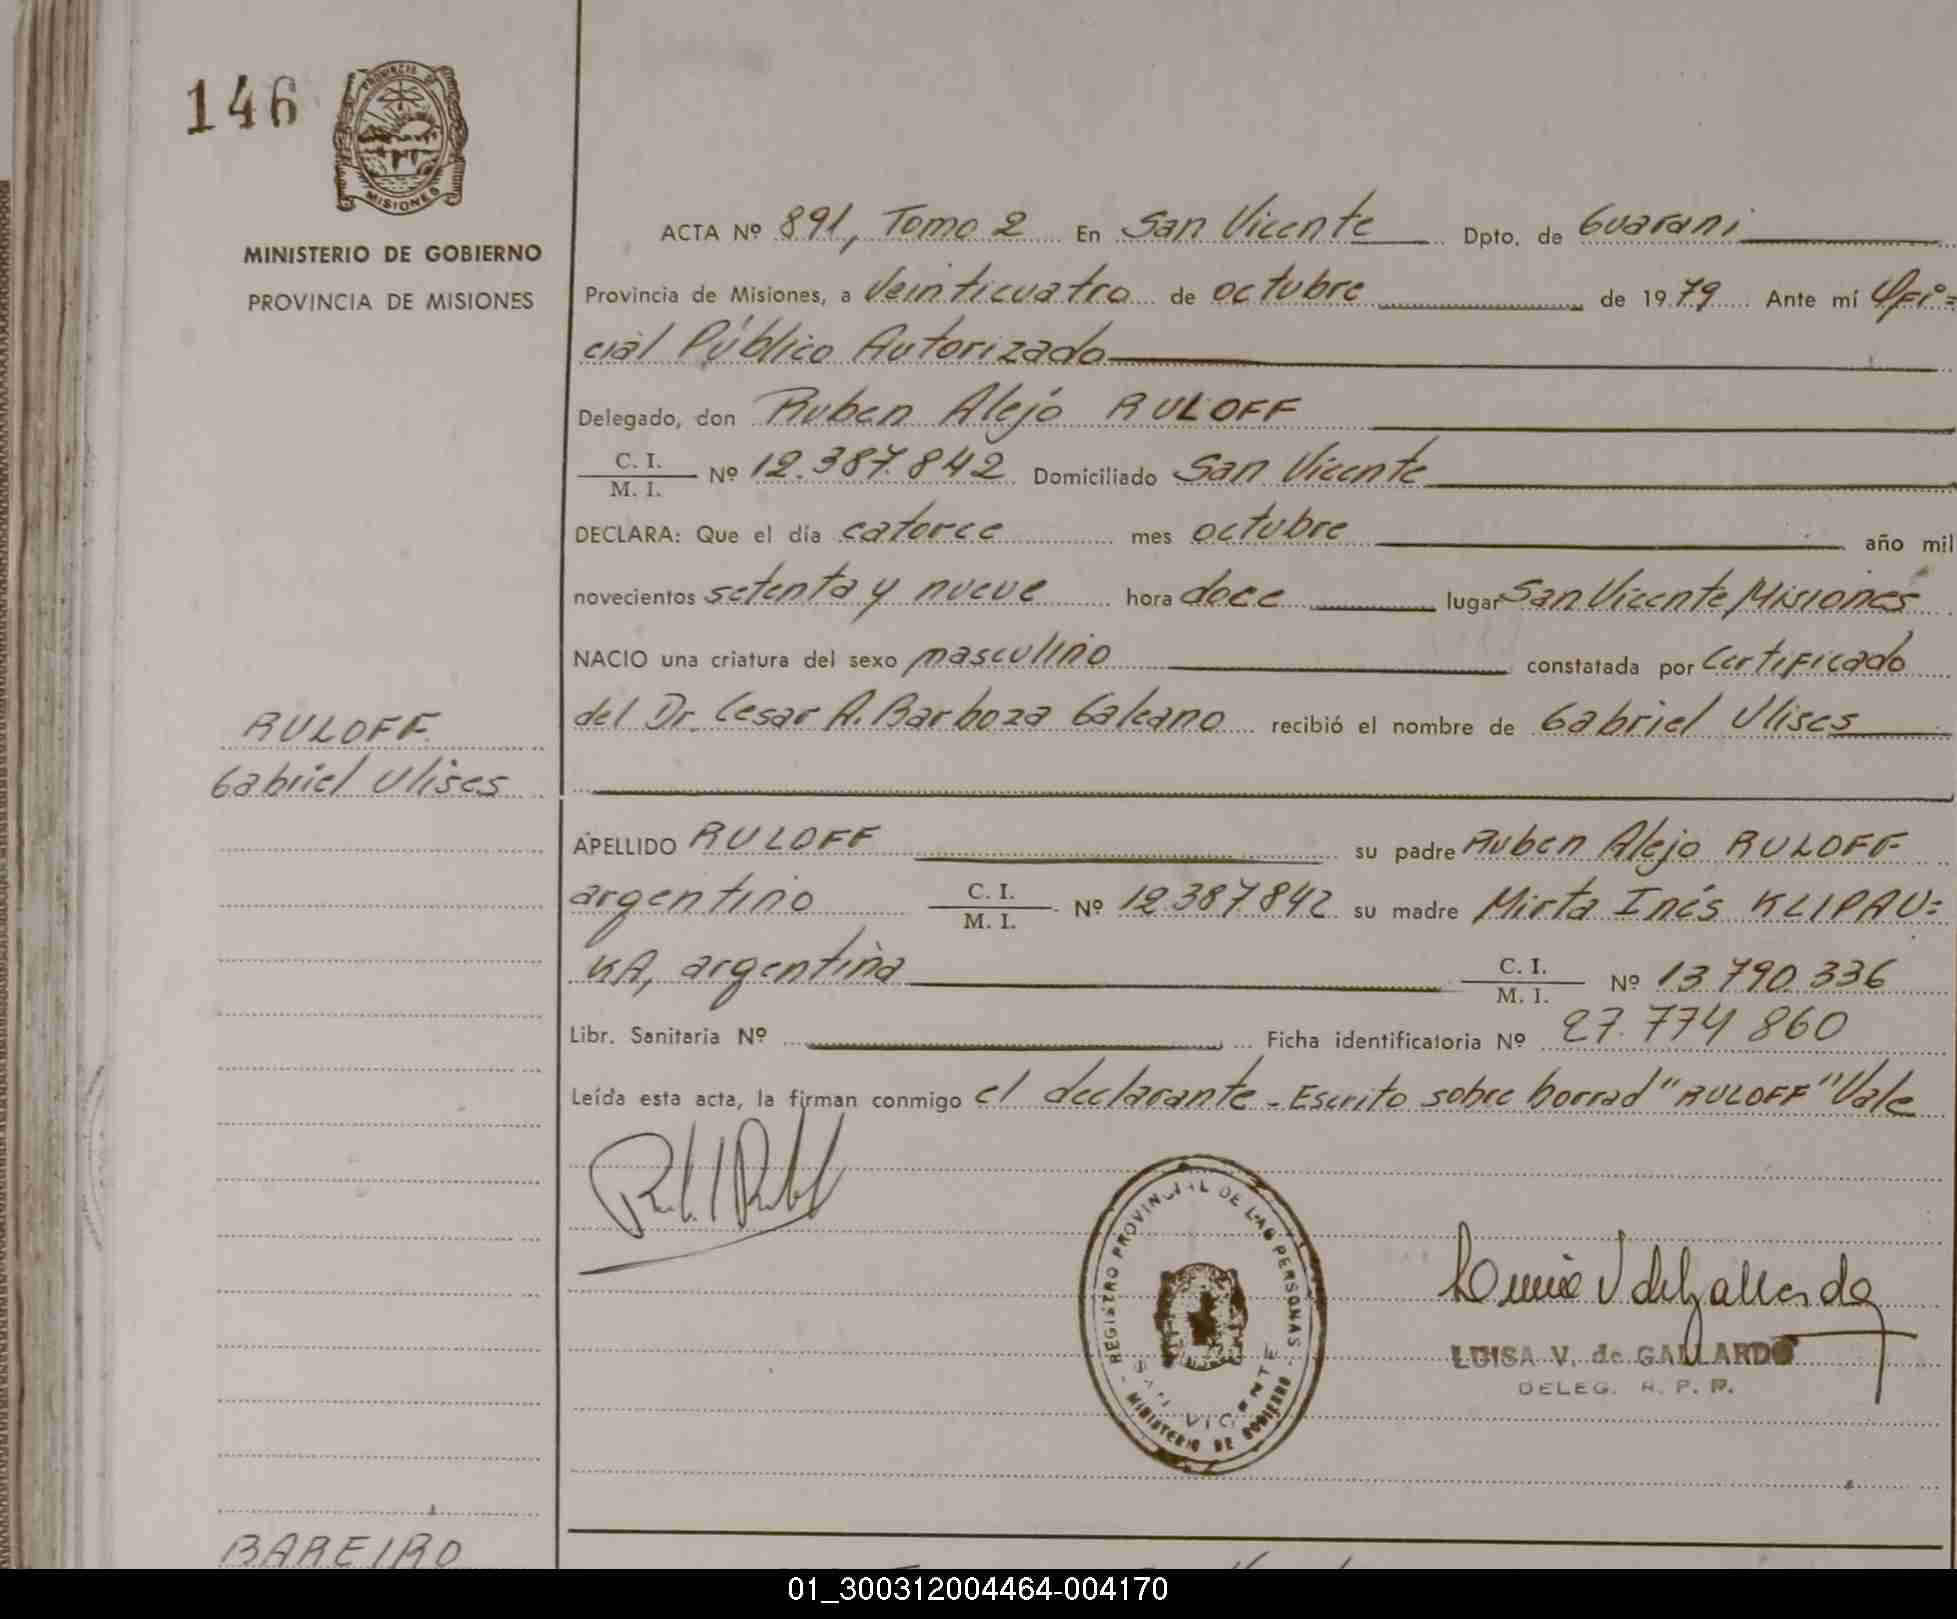 146
PROVINCIA DE
MISIONES
MINISTERIO DE GOBIERNO
PROVINCIA DE MISIONES
ACTA Nº 891, Tomo 2 En San Vicente Dpto. de Guarani
Provincia de Misiones, a Veinticuatro de octubre de 1979 Ante mí Ofi=
cial Público Autorizado
Delegado, don Ruben Alejo RULOFF
C. I. / M. I. Nº 12.387.842 Domiciliado San Vicente
DECLARA: Que el día catorce mes octubre año mil
novecientos setenta y nueve hora doce lugar San Vicente Misiones
NACIO una criatura del sexo masculino constatada por Certificado
del Dr. Cesar A. Barboza Galeano recibió el nombre de Gabriel Ulises
RULOFF
Gabriel Ulises
APELLIDO RULOFF su padre Ruben Alejo RULOFF
argentino C. I. / M. I. Nº 12.387.842 su madre Mirta Inés KLIPAU=
KA, argentina C. I. / M. I. Nº 13.790.336
Libr. Sanitaria Nº Ficha identificatoria Nº 27.774.860
Leída esta acta, la firman conmigo el declarante - Escrito sobre borrad "RULOFF" Vale
REGISTRO PROVINCIAL DE LAS PERSONAS
SAN VICENTE
MINISTERIO DE GOBIERNO
LUISA V. de GALLARDO
DELEG. R. P. P.
BAREIRO
01_300312004464-004170